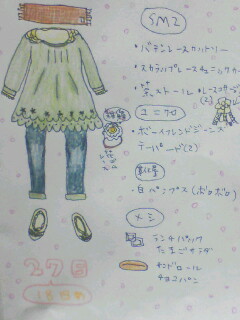 SM2
・バテンレースカットソー
・スカラップレースチュニックカ
・茶ストール
レースコサージュ
(2)
ユニクロ
・ボーイフレンドジーンズ
テーパード(2)
靴屋
・白パンプス(ボロボロ)
メシ
ランチパック
たまごサラダ
チョコパン
27日